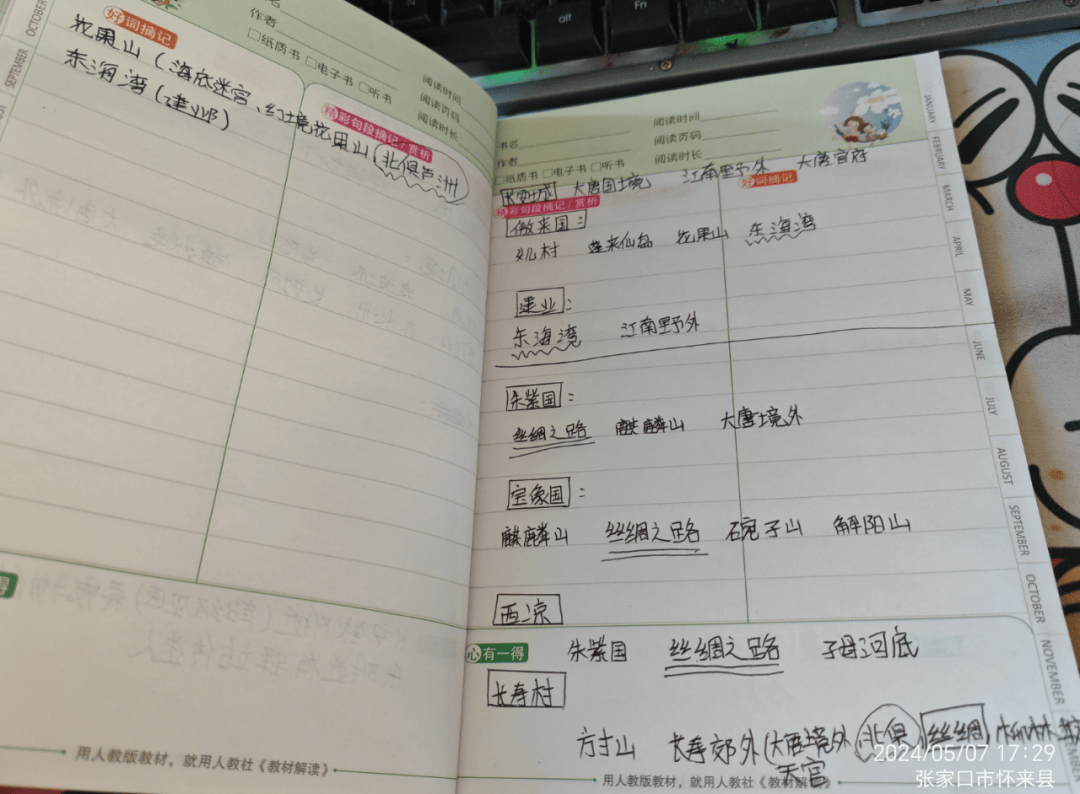 OCTOBER
SEPTEMBER
作者
□纸质书 □电子书 □听书
阅读时间
阅读页码
阅读时长
好词摘记
花果山（海底迷宫、
东海湾（建业）
精彩句段摘记/赏析
花果山（北俱芦洲
用人教版教材，就用人教社《教材解读》
alt
Fn
书名
作者
□纸质书 □电子书 □听书
阅读时间
阅读页码
阅读时长
长安城 大唐国境 江南野外 大唐官府
好词摘记
精彩句段摘记/赏析
傲来国：
女儿村 蓬来仙岛 花果山 东海湾
建业：
东海湾 江南野外
朱紫国：
丝绸之路 麒麟山 大唐境外
宝象国：
麒麟山 丝绸之路 碗子山 解阳山
西凉
心有一得
朱紫国 丝绸之路 子母河底
长寿村
方寸山 长寿郊外（大唐境外 北俱 丝绸 柳林坡
天宫
用人教版教材，就用人教社《教材解读》
JANUARY
FEBRUARY
MARCH
APRIL
MAY
JUNE
JULY
AUGUST
SEPTEMBER
OCTOBER
NOVEMBER
2024/05/07 17:29
张家口市怀来县